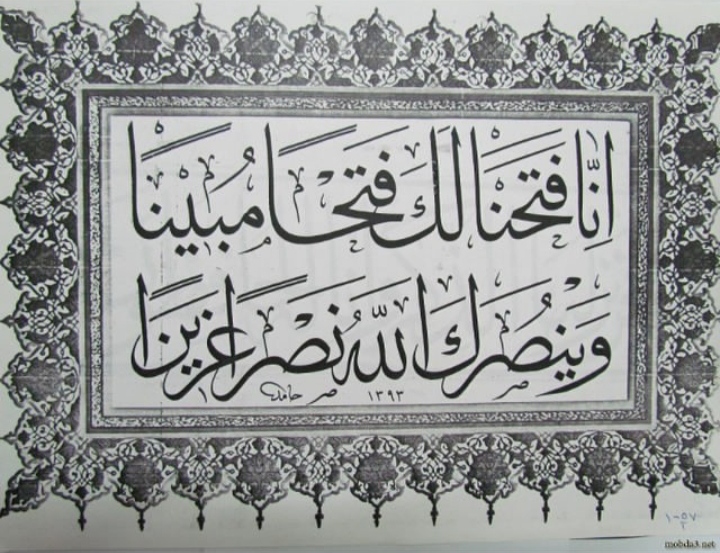 إِنَّا فَتَحْنَا لَكَ فَتْحًا مُبِينًا
وَيَنْصُرَكَ اللّٰهُ نَصْرًا عَزِيزًا
حامد ١٣٩٣
mobda3.net